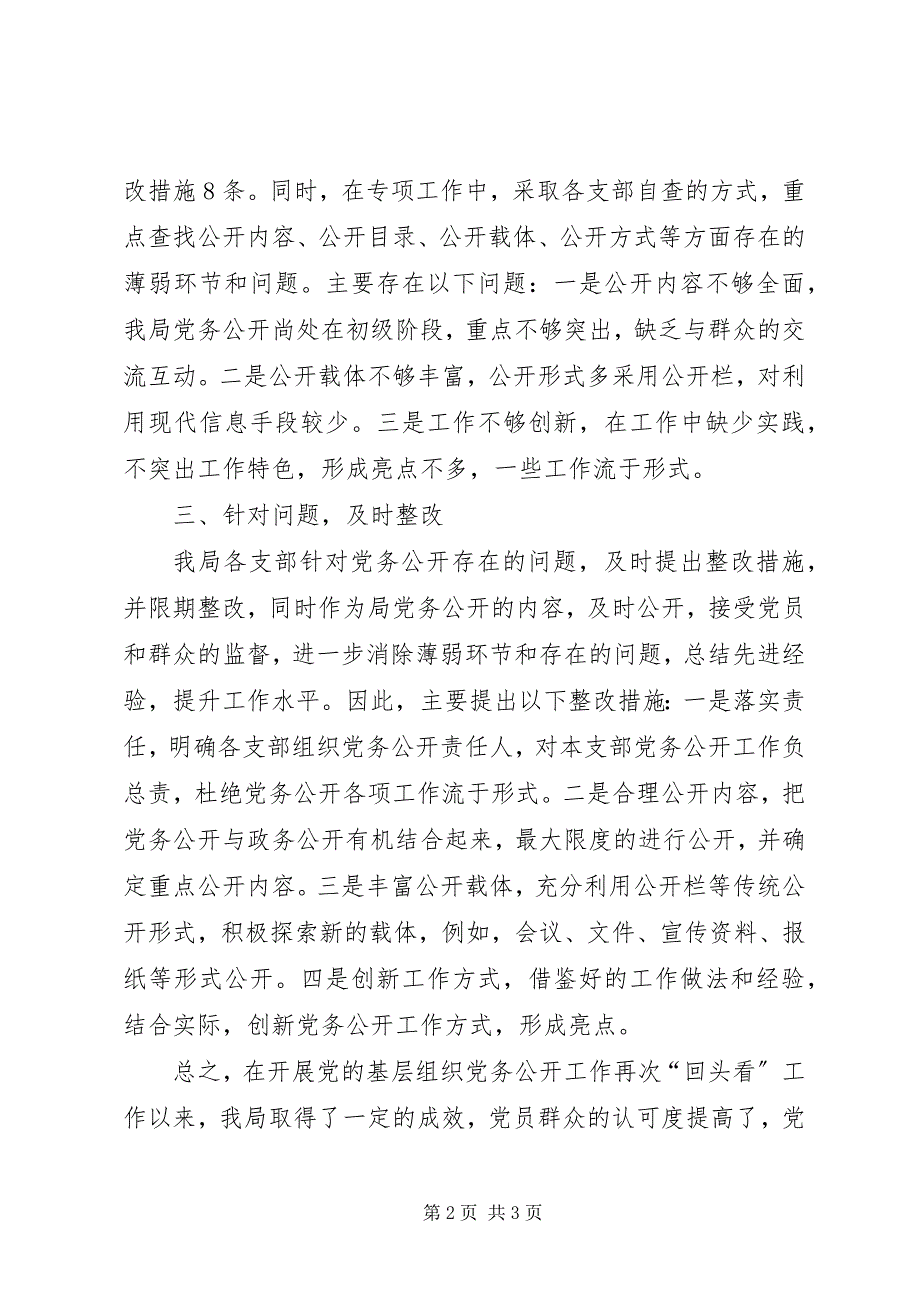 改措施8条。同时，在专项工作中，采取各支部自查的方式，重
点查找公开内容、公开目录、公开载体、公开方式等方面存在的
薄弱环节和问题。主要存在以下问题：一是公开内容不够全面，
我局党务公开尚处在初级阶段，重点不够突出，缺乏与群众的交
流互动。二是公开载体不够丰富，公开形式多采用公开栏，对利
用现代信息手段较少。三是工作不够创新，在工作中缺少实践，
不突出工作特色，形成亮点不多，一些工作流于形式。
三、针对问题，及时整改
我局各支部针对党务公开存在的问题，及时提出整改措施，
并限期整改，同时作为局党务公开的内容，及时公开，接受党员
和群众的监督，进一步消除薄弱环节和存在的问题，总结先进经
验，提升工作水平。因此，主要提出以下整改措施：一是落实责
任，明确各支部组织党务公开责任人，对本支部党务公开工作负
总责，杜绝党务公开各项工作流于形式。二是合理公开内容，把
党务公开与政务公开有机结合起来，最大限度的进行公开，并确
定重点公开内容。三是丰富公开载体，充分利用公开栏等传统公
开形式，积极探索新的载体，例如，会议、文件、宣传资料、报
纸等形式公开。四是创新工作方式，借鉴好的工作做法和经验，
结合实际，创新党务公开工作方式，形成亮点。
总之，在开展党的基层组织党务公开工作再次“回头看〞工
作以来，我局取得了一定的成效，党员群众的认可度提高了，党
第2页 共3页